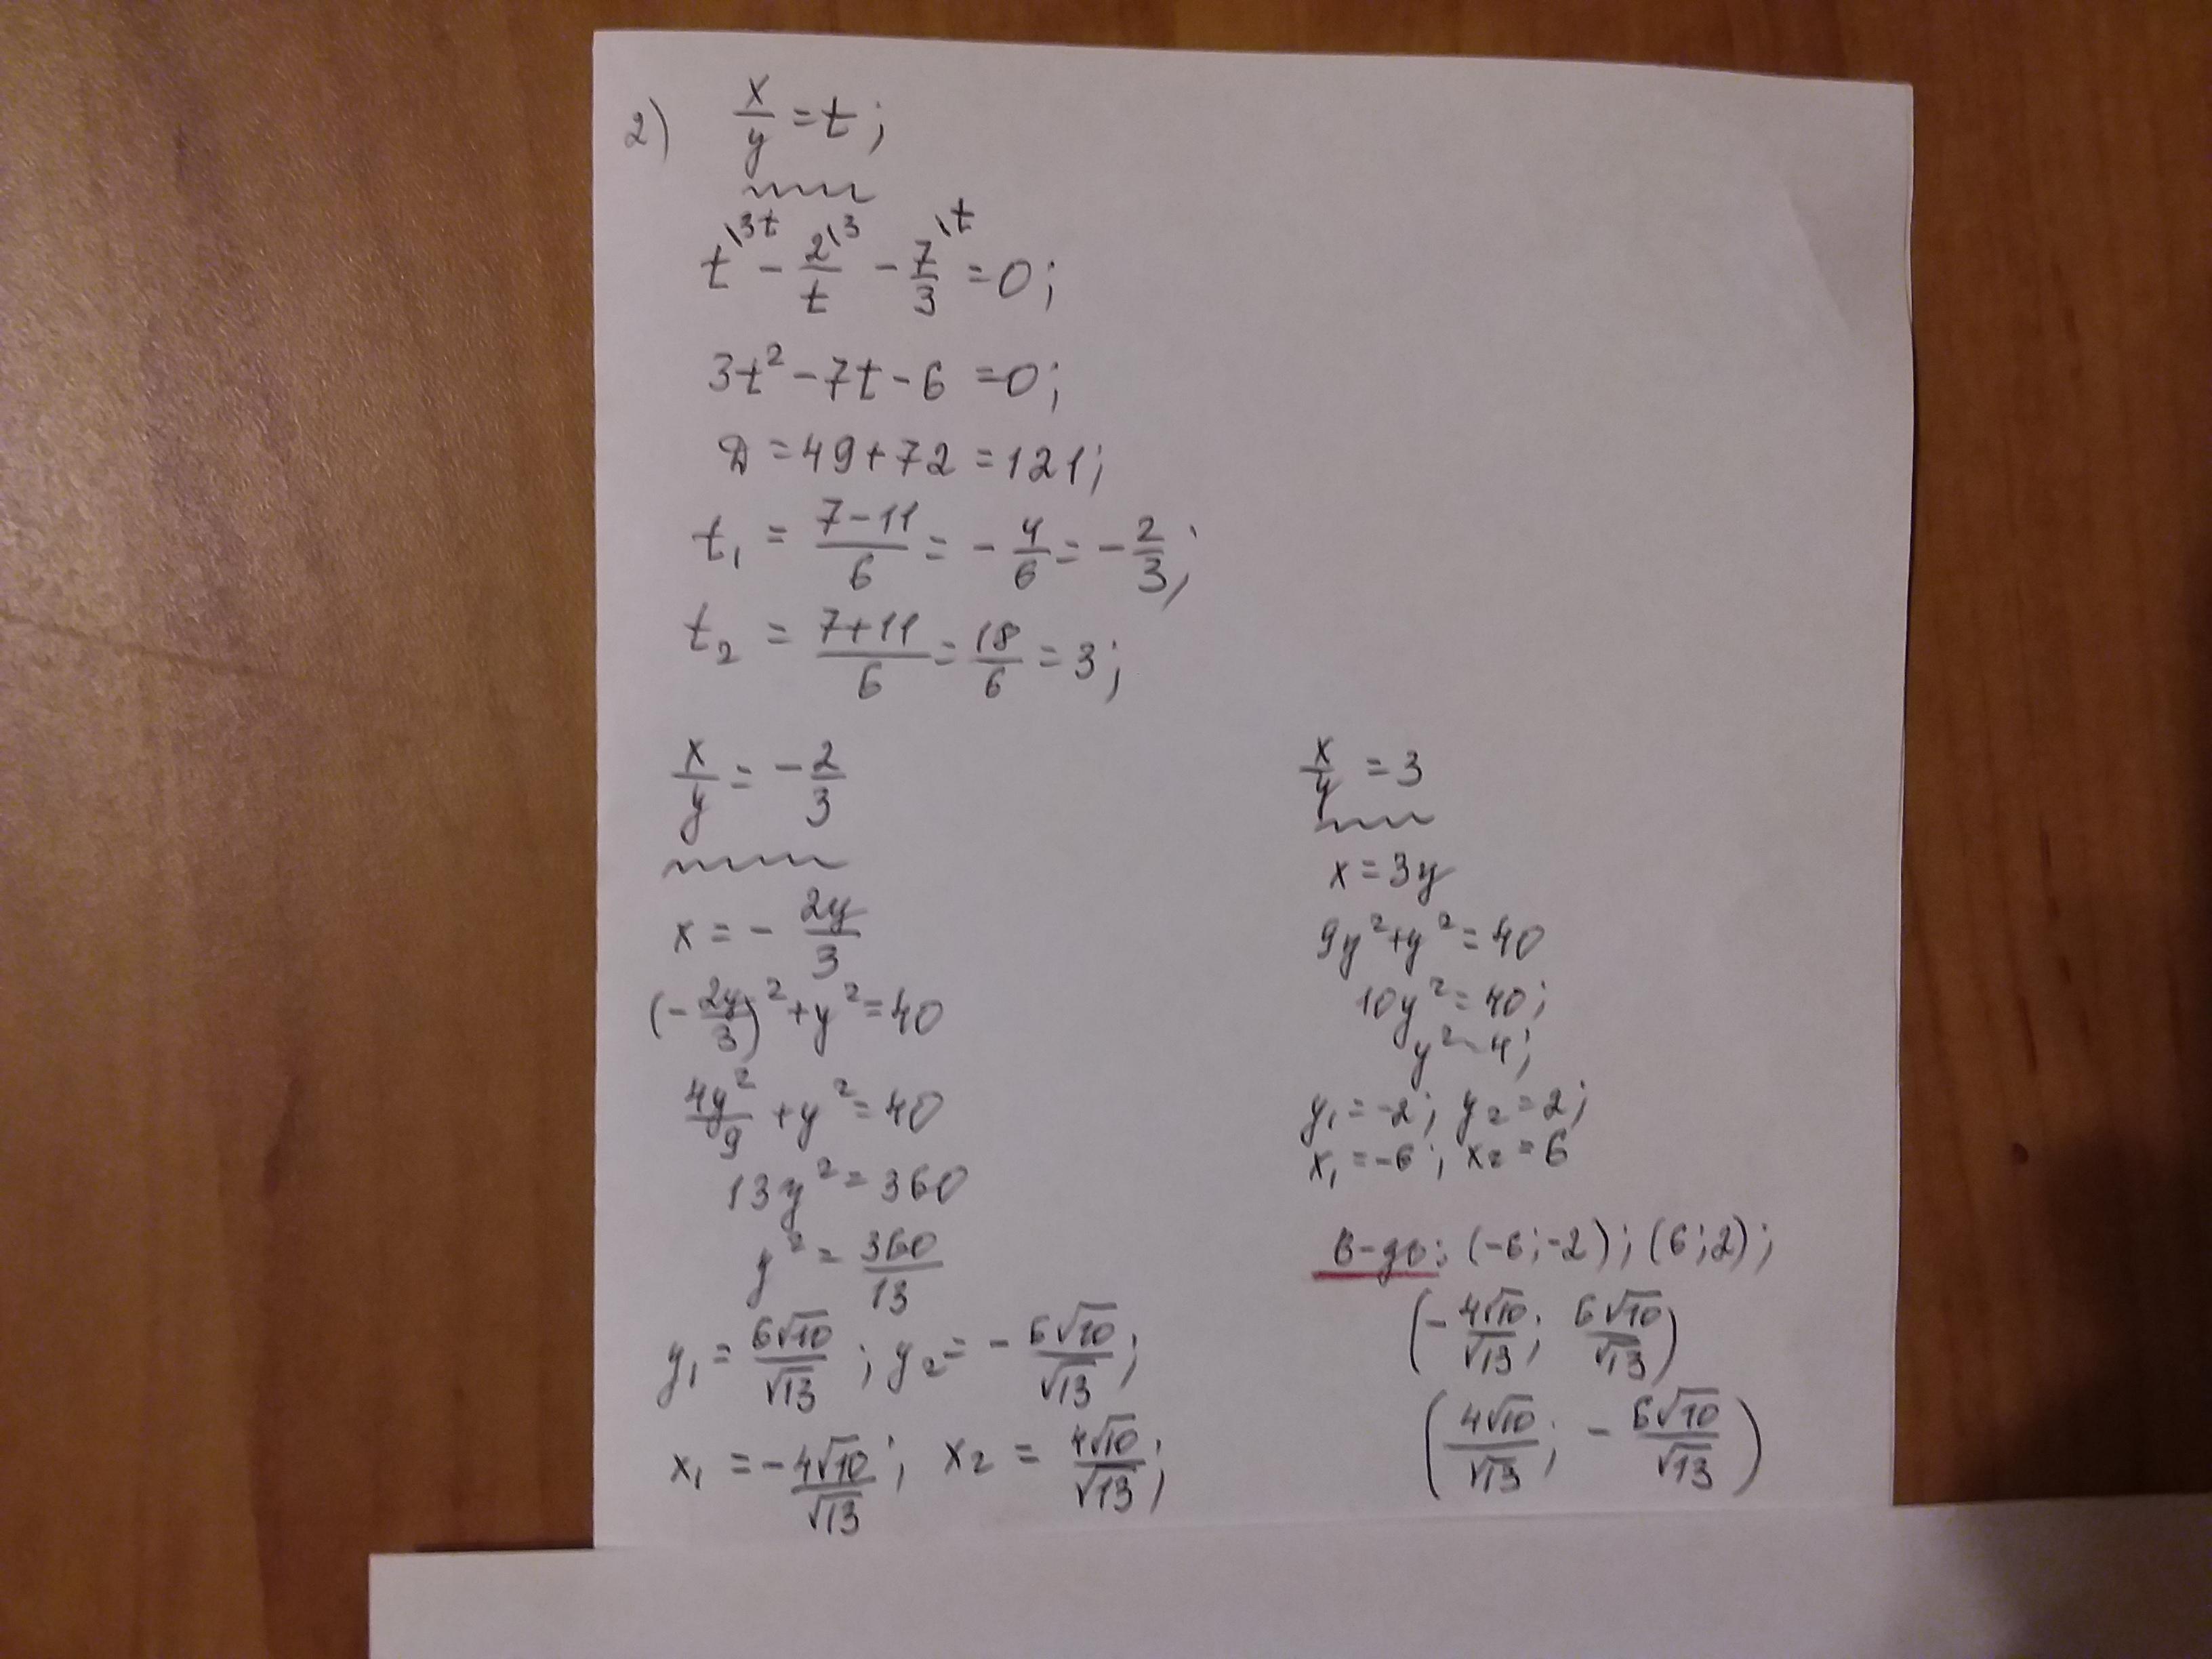 2) x/y = t;
t\3t - 2/t\3 - 7/3\t = 0;
3t² - 7t - 6 = 0;
D = 49 + 72 = 121;
t₁ = (7-11)/6 = - 4/6 = - 2/3;
t₂ = (7+11)/6 = 18/6 = 3;
x/y = - 2/3
x = - 2y/3
(- 2y/3)² + y² = 40
4y²/9 + y² = 40
13y² = 360
y² = 360/13
y₁ = 6√10/√13; y₂ = - 6√10/√13;
x₁ = - 4√10/√13; x₂ = 4√10/√13;
x/y = 3
x = 3y
9y² + y² = 40
10y² = 40;
y² = 4;
y₁ = -2; y₂ = 2;
x₁ = -6; x₂ = 6
В-дь: (-6;-2); (6;2);
(- 4√10/√13; 6√10/√13)
(4√10/√13; - 6√10/√13)